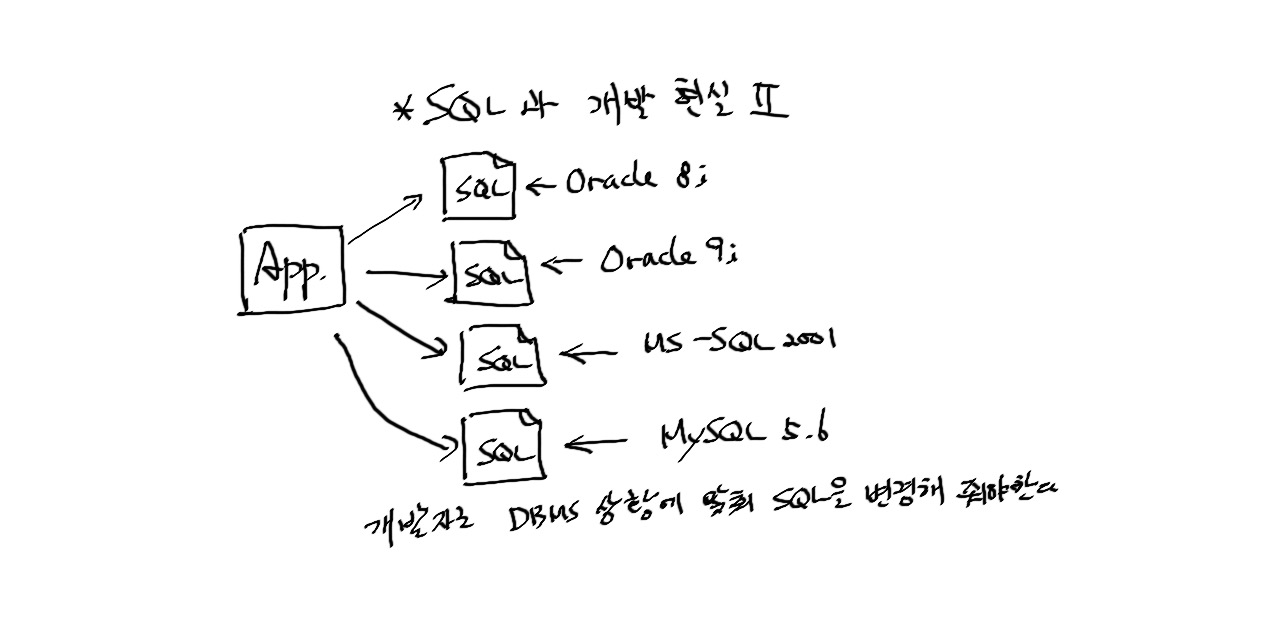 * SQL과 개발 현실 II
SQL ← Oracle 8i
App.
SQL ← Oracle 9i
SQL ← MS-SQL 2001
SQL ← MySQL 5.6
개발자는 DBMS 상황에 맞춰 SQL을 변경해 줘야한다